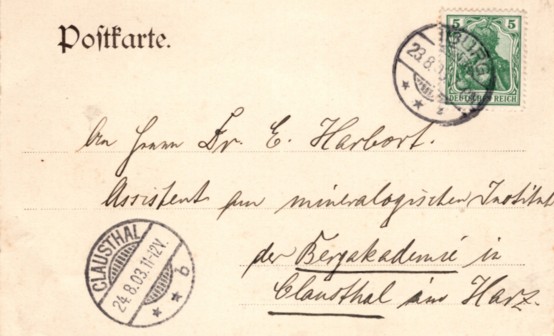 Postkarte.
5 5
DEUTSCHES REICH
23.8.03
An Herrn Dr. E. Harbort.
Assistent am mineralogischen Institut
der Bergakademie in
Clausthal am Harz.
CLAUSTHAL
24.8.03.11-12V.
* * b